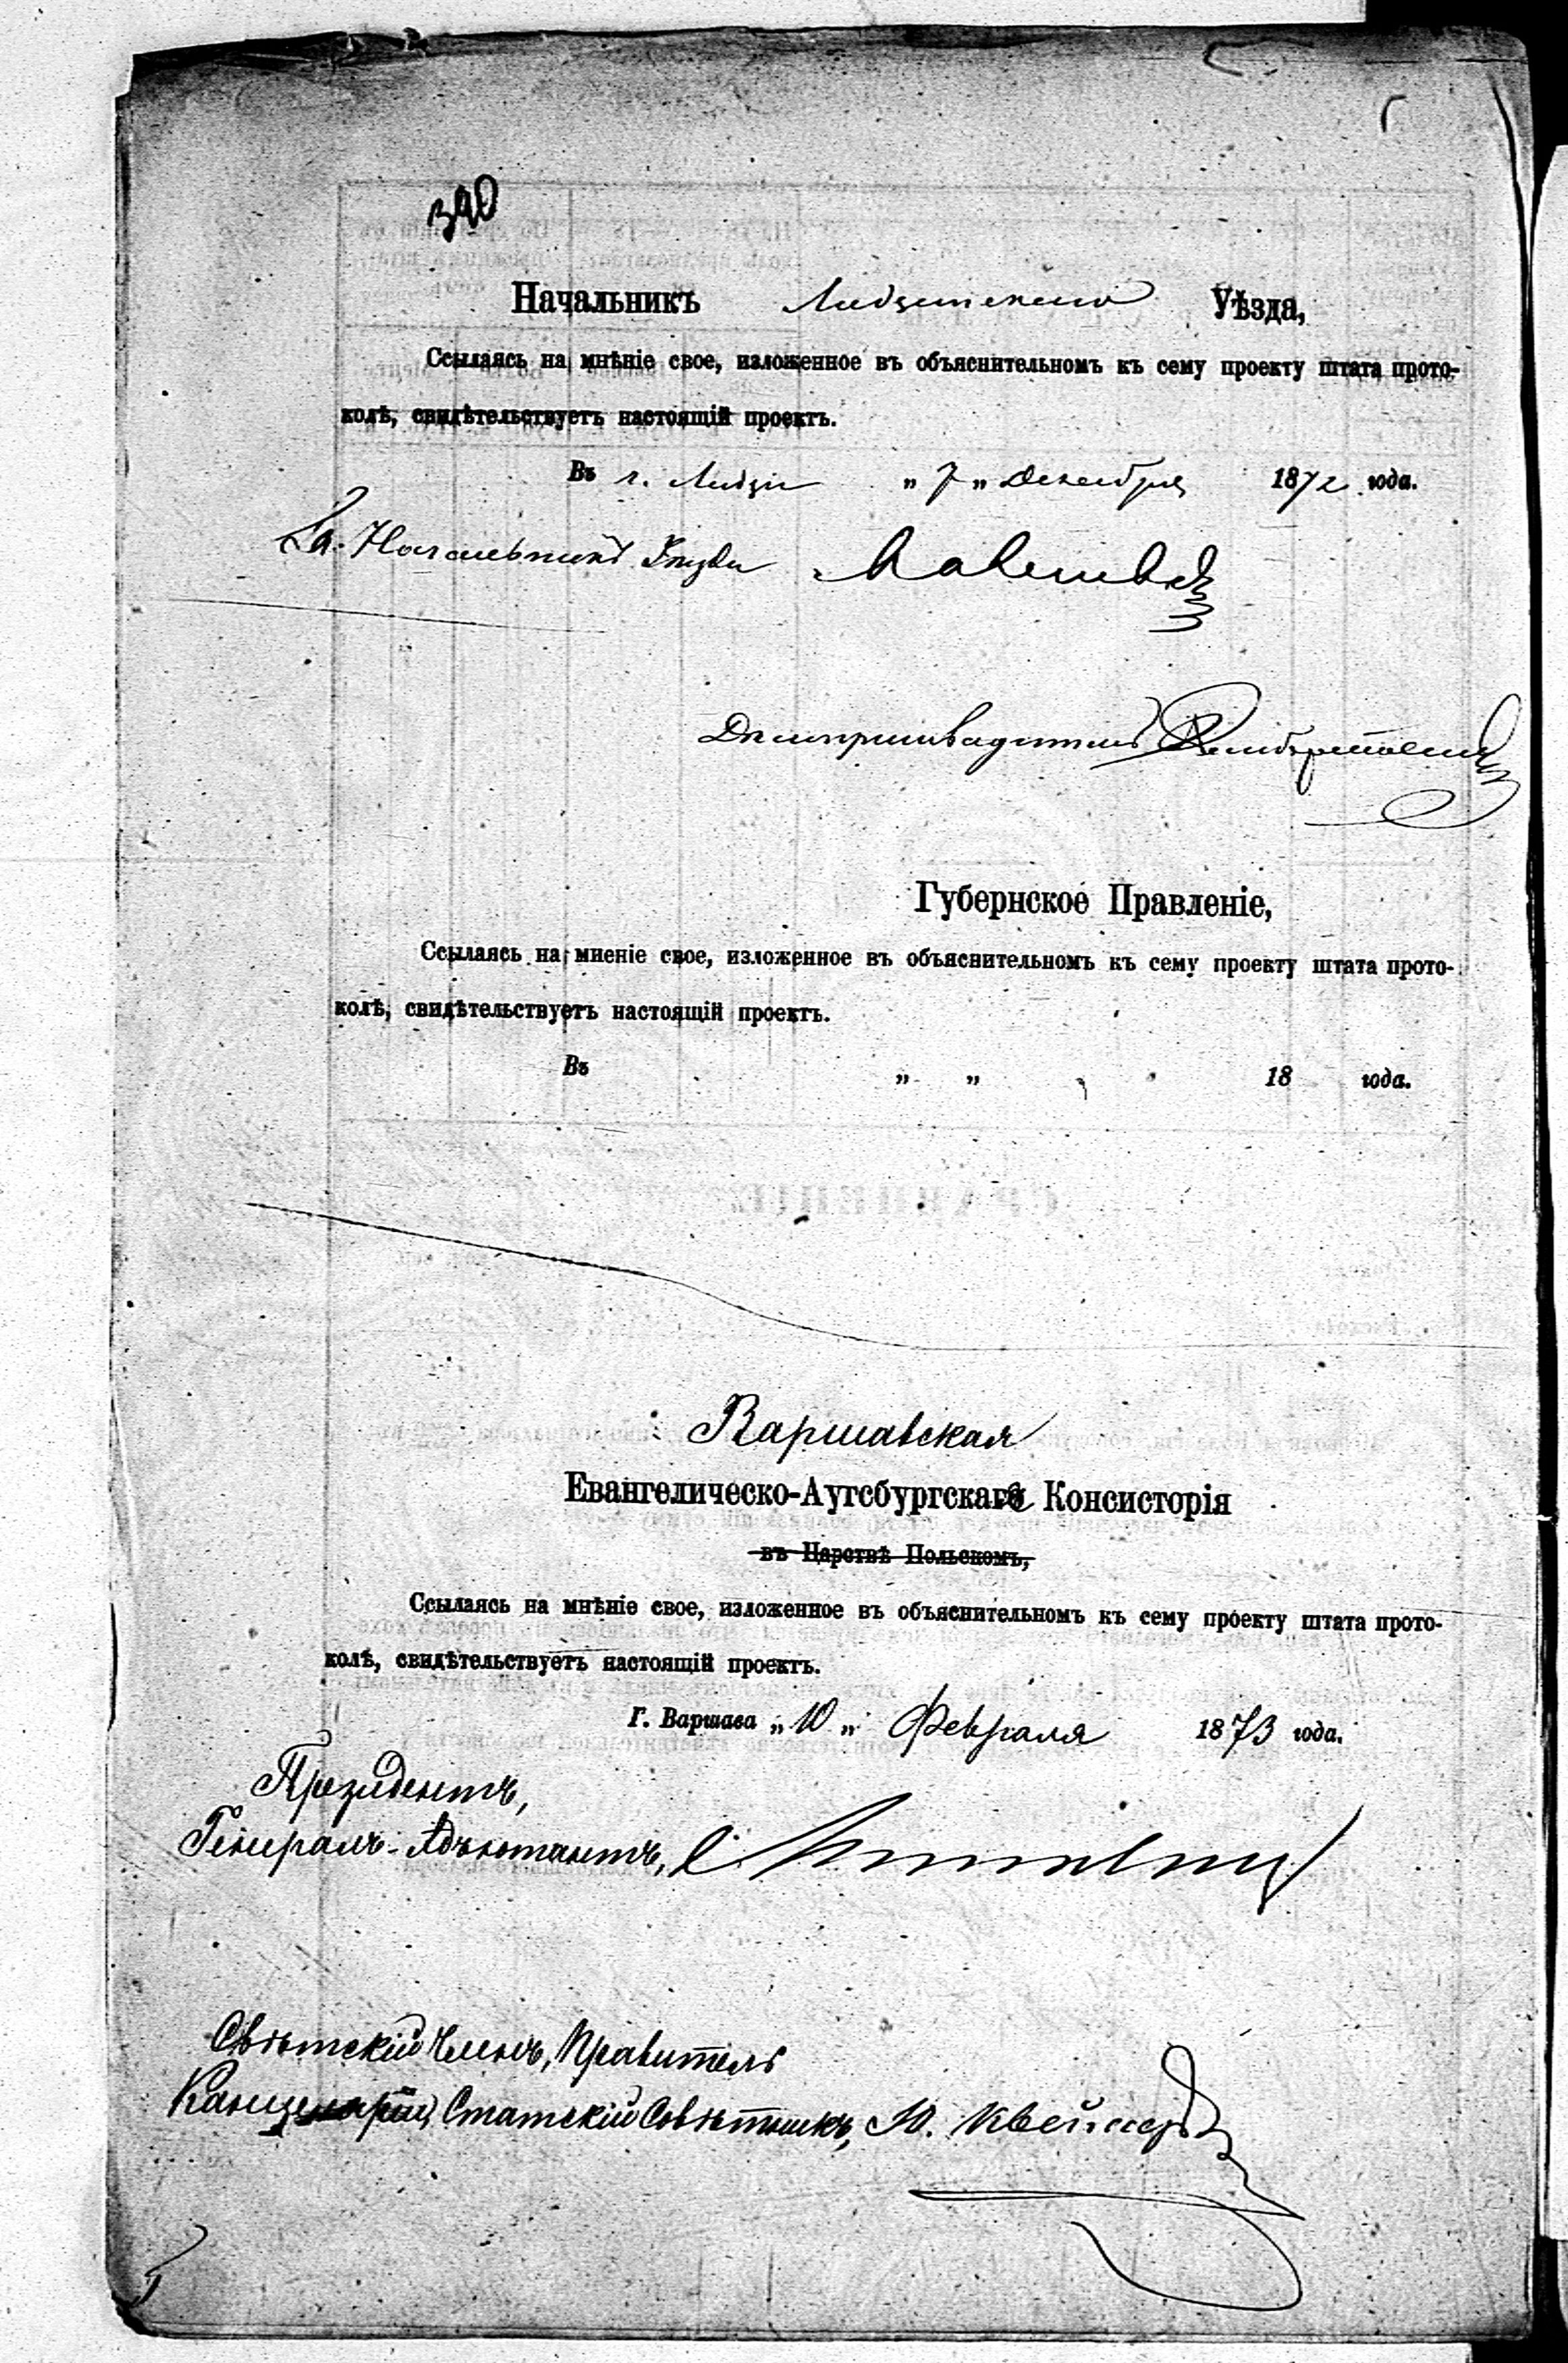 390
Начальникъ Лодзинскаго Уѣзда,
Ссылаясь на мнѣніе свое, изложенное въ объяснительномъ къ сему проекту штата прото-
колѣ, свидѣтельствуетъ настоящій проектъ.
Въ г. Лодзи „ 7 „ Декабря 1872 года.
За. Начальникъ Уѣзда
Дѣлопроизводитель
Губернское Правленіе,
Ссылаясь на мненіе свое, изложенное въ объяснительномъ къ сему проекту штата прото-
колѣ, свидѣтельствуетъ настоящій проектъ.
Въ „ „ 18 года.
Варшавская
Евангелическо-Аугсбургская Консисторія
въ Царствѣ Польскомъ,
Ссылаясь на мнѣніе свое, изложенное въ объяснительномъ къ сему проекту штата прото-
колѣ, свидѣтельствуетъ настоящій проектъ.
Г. Варшава „ 10 „ Февраля 1873 года.
Президентъ,
Генералъ-Адъютантъ,
Свѣтскій Членъ, Правитель
Канцеляріи, Статскій Совѣтникъ, Ю.